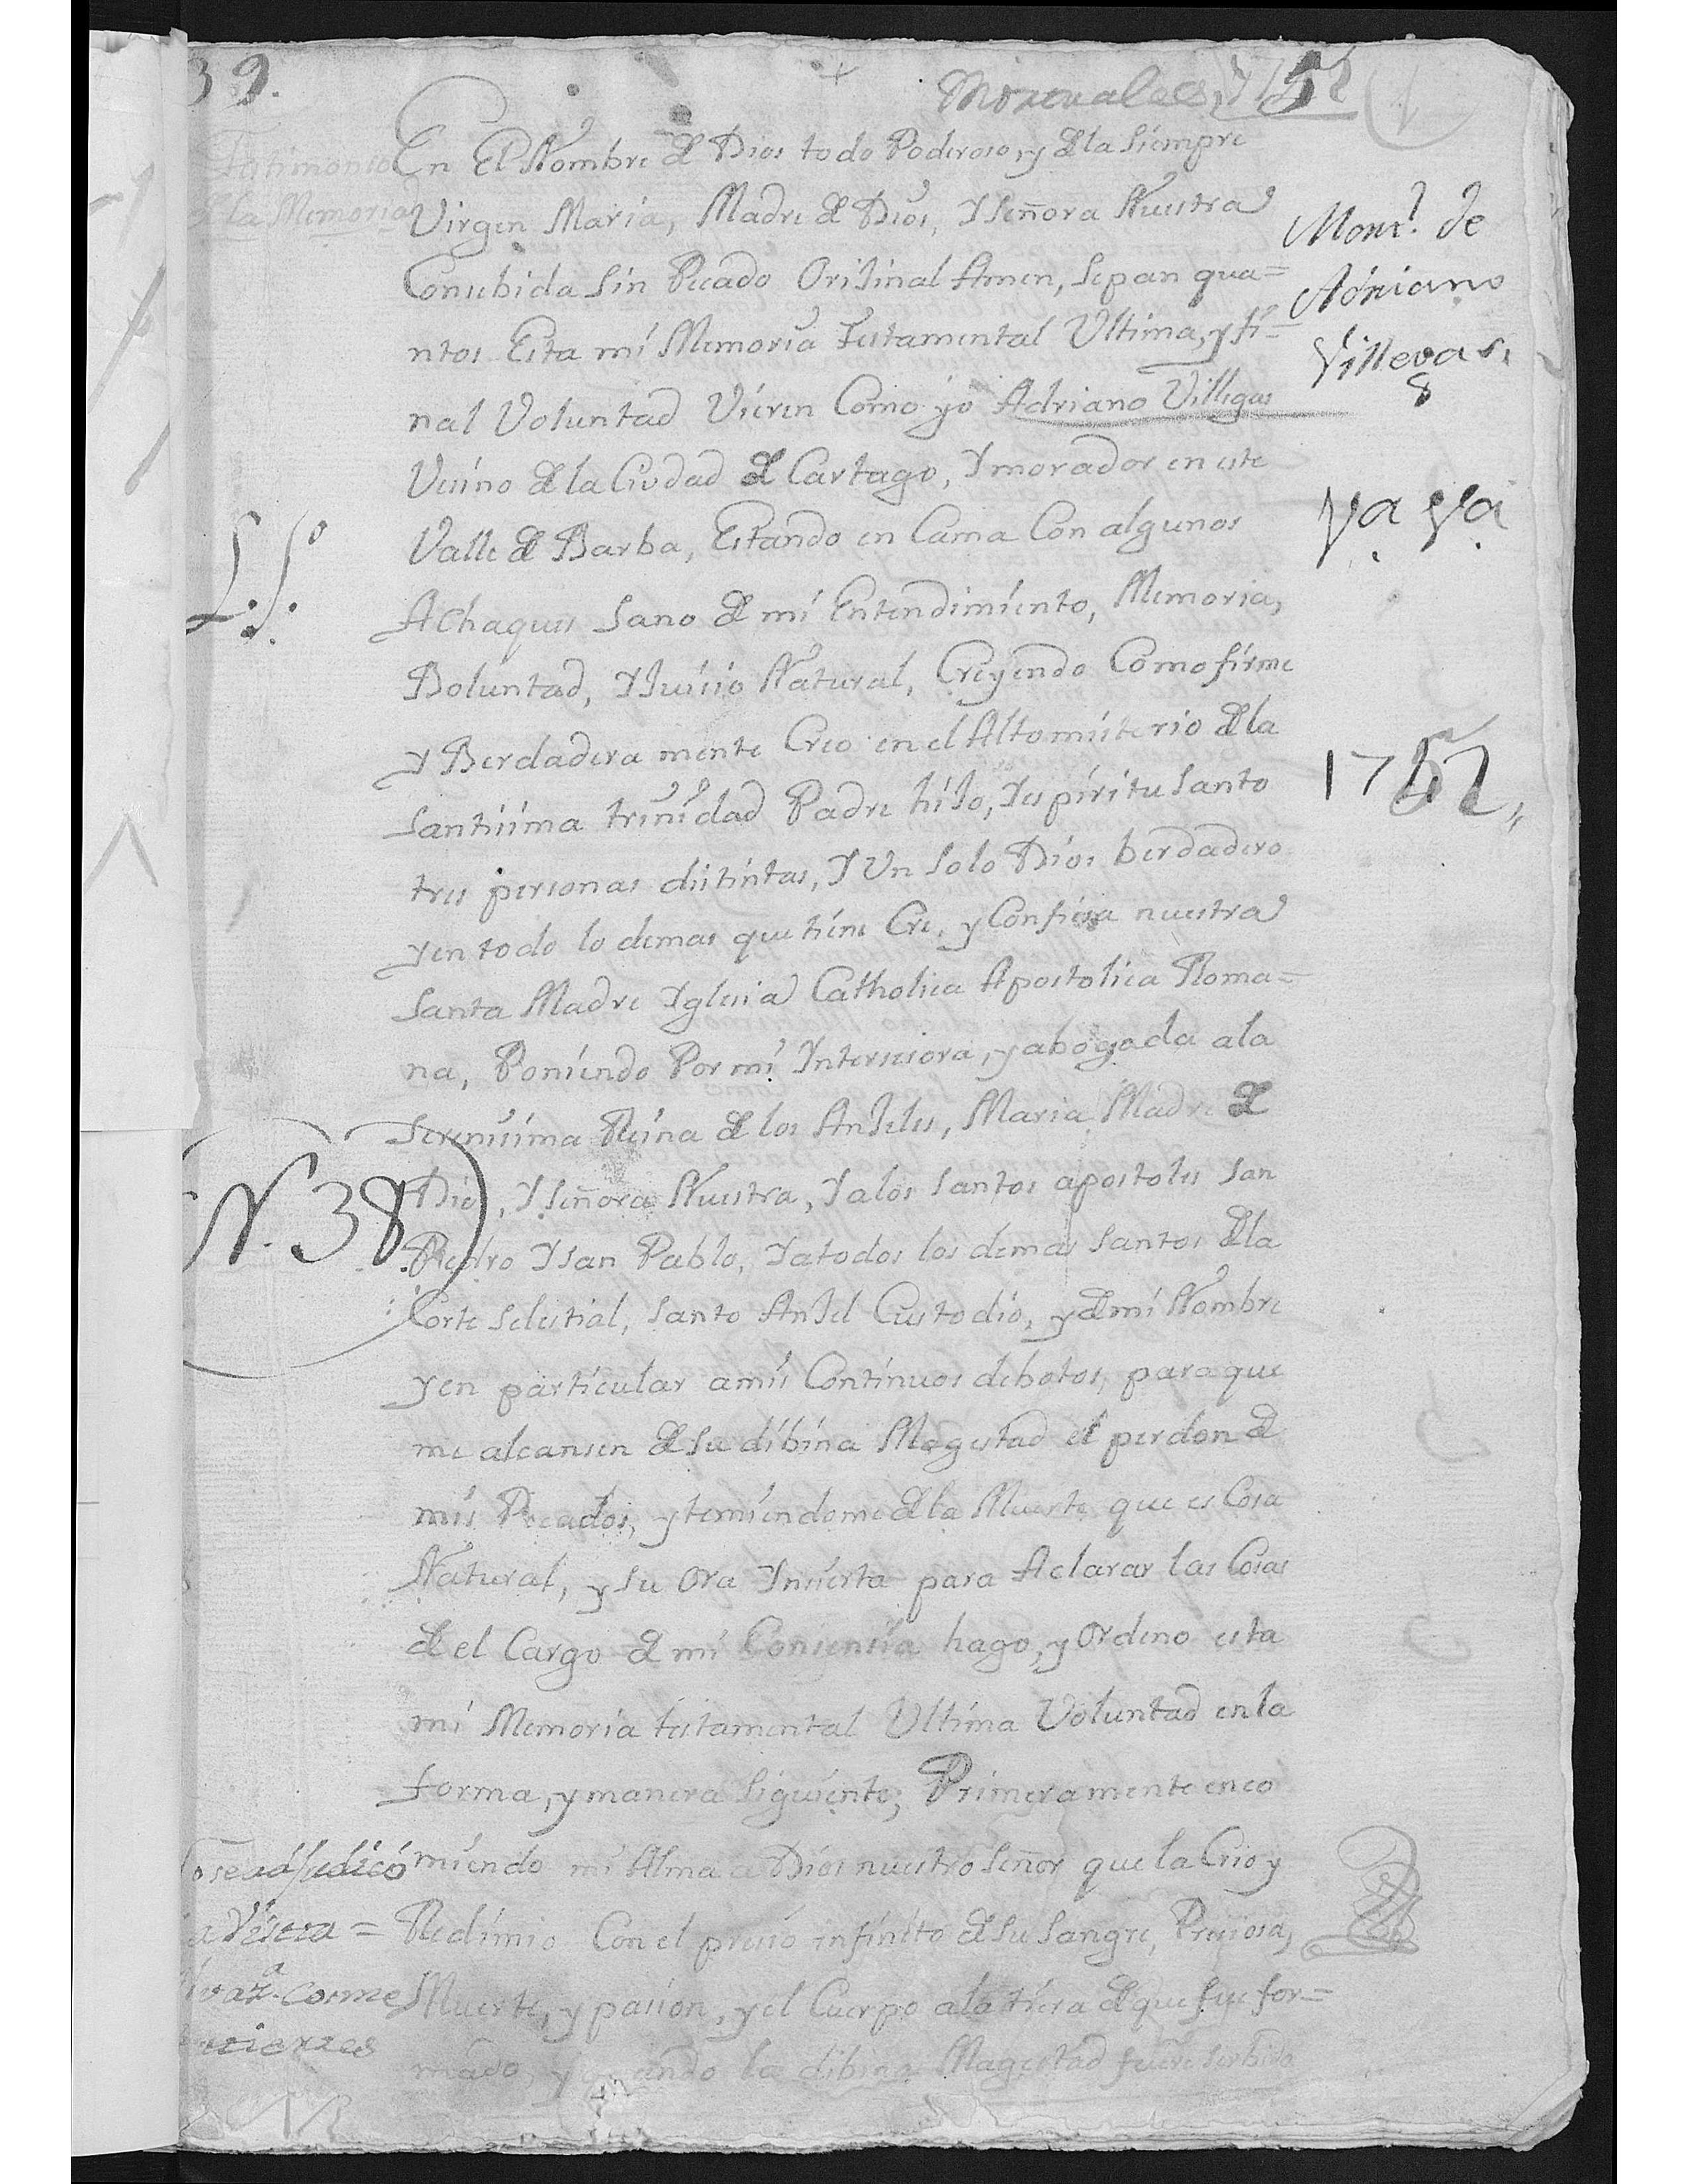 39.
Mortuales, 1752
1
Testimonio
de la Memoria
En El Nombre de Dios todo Poderoso, y de la Siempre
Virgen Maria, Madre de Dios, Y Señora Nuestra
Consebida Sin Pecado OriJinal Amen, Sepan qua=
ntos Esta mi Memoria Testamental Ultima, y fi=
nal Voluntad Vieren Como yo Adriano Villegas
Vesino de la Ciudad de Cartago, Y morador en este
Valle de Barba, Estando en Cama Con algunos
Achaques Sano de mi Entendimiento, Memoria,
Boluntad, Y Juisio Natural, Creyendo Como firme
y Berdadera mente Creo en el Alto misterio de la
Santisima trinidad Padre hiJo, Y espiritu Santo
tres personas distintas, Y Un Solo Dios berdadero
y en todo lo demas que tiene Cre, y Confiesa nuestra
Santa Madre Yglesia Catholica Apostolica Roma=
na, Poniendo Por mi Intersesora, y abogada a la
Serenisima Reina de los AnJeles, Maria Madre de
Dios, Y Señora Nuestra, Y a los Santos apostoles San
Pedro Y San Pablo, Y a todos los demas Santos de la
Corte Selestial, Santo AnJel Custodio, y de mi Nombre
y en particular a mis Continuos debotos, para que
me alcansen de Su dibina Magestad el perdon de
mis Pecados, y temiendome de la Muerte que es Cosa
Natural, y Su Ora Ynsierta para Aclarar las Cosas
de el Cargo de mi Consiensia hago, y Ordeno esta
mi Memoria testamental Ultima Voluntad en la
forma, y manera Siguiente; Primeramente enco
miendo mi Alma a Dios nuestro Señor que la Crio y
Redimio Con el presio infinito de Su Sangre, Presiosa,
Muerte, y pasion, y el Cuerpo a la tiera de que fue for=
mado, y quando la dibina Magestad fuere Serbido
Mort.l de
Adriano
Villegas.
8
Va Va
1752
N. 38
se adJudicó
a Visera =
Cosme